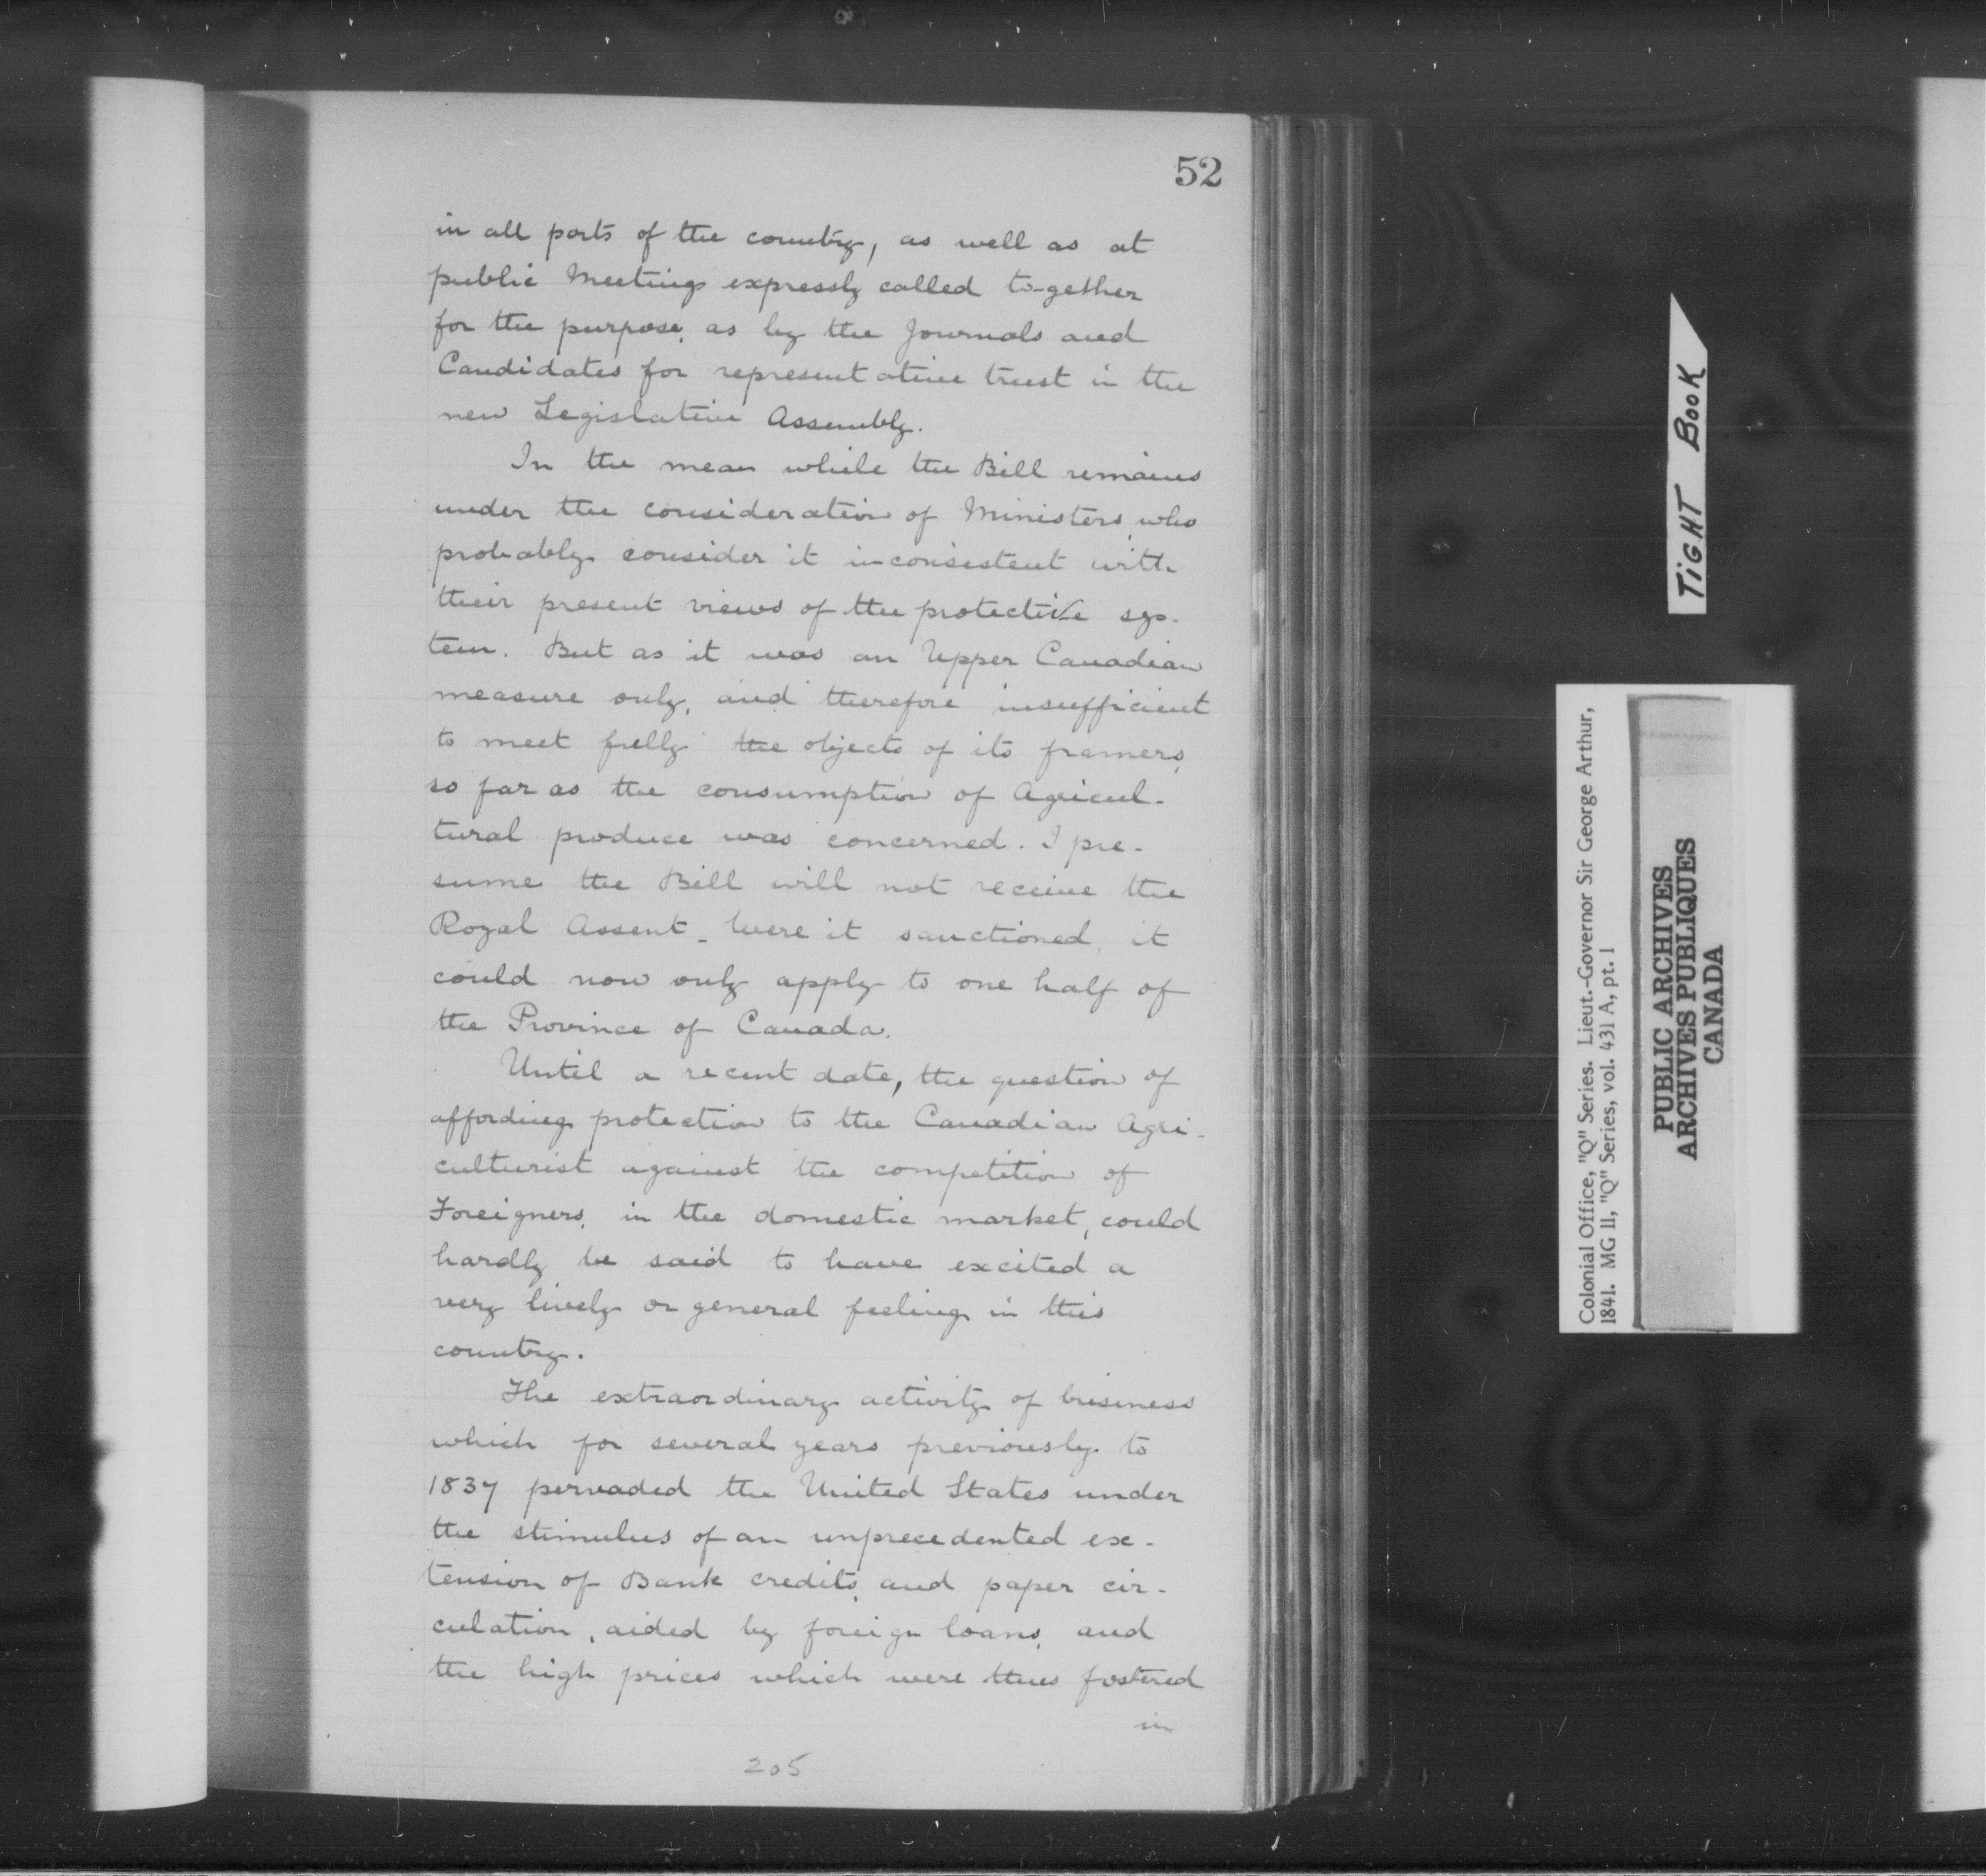 52
in all parts of the country, as well as at
public Meetings expressly called to-gether
for the purpose, as by the Journals and
Candidates for representative trust in the
new Legislative Assembly.
In the mean while the Bill remains
under the consideration of Ministers, who
probably consider it inconsistent with
their present views of the protective sys-
tem. But as it was an Upper Canadian
measure only, and therefore insufficient
to meet fully the objects of its framers,
so far as the consumption of Agricul-
tural produce was concerned. I pre-
sume the Bill will not receive the
Royal Assent - Were it sanctioned, it
could now only apply to one half of
the Province of Canada.
Until a recent date, the question of
affording protection to the Canadian Agri-
culturist against the competition of
Foreigners, in the domestic market, could
hardly be said to have excited a
very lively or general feeling in this
country.
The extraordinary activity of business
which for several years previously to
1837 pervaded the United States under
the stimulus of an unprecedented ex-
tension of Bank credits, and paper cir-
culation, aided by foreign loans, and
the high prices which were thus fostered
in
205
TIGHT BOOK
Colonial Office, "Q" Series. Lieut.-Governor Sir George Arthur,
1841. MG 11, "Q" Series, vol. 431 A, pt. 1
PUBLIC ARCHIVES
ARCHIVES PUBLIQUES
CANADA